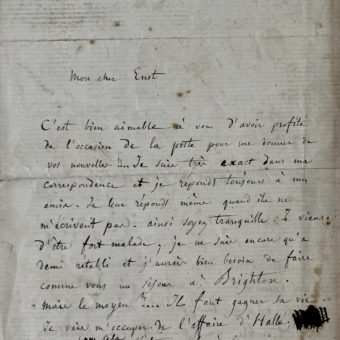 Mon cher Ernst
C'est bien aimable à vous d'avoir profité
de l'occasion de la poste pour me donner de
vos nouvelles !... Je suis très exact dans ma
correspondance et je réponds toujours à mes
amis. Je leur réponds même quand ils ne
m'écrivent pas. ainsi soyez tranquille. Je viens
d'être fort malade, je ne suis encore qu'à
demi rétabli et j'aurais bien besoin de faire
comme vous un séjour à Brighton.
mais le moyen ?... Il faut gagner sa vie.
Je vais m'occuper de l'affaire d'Hallé;